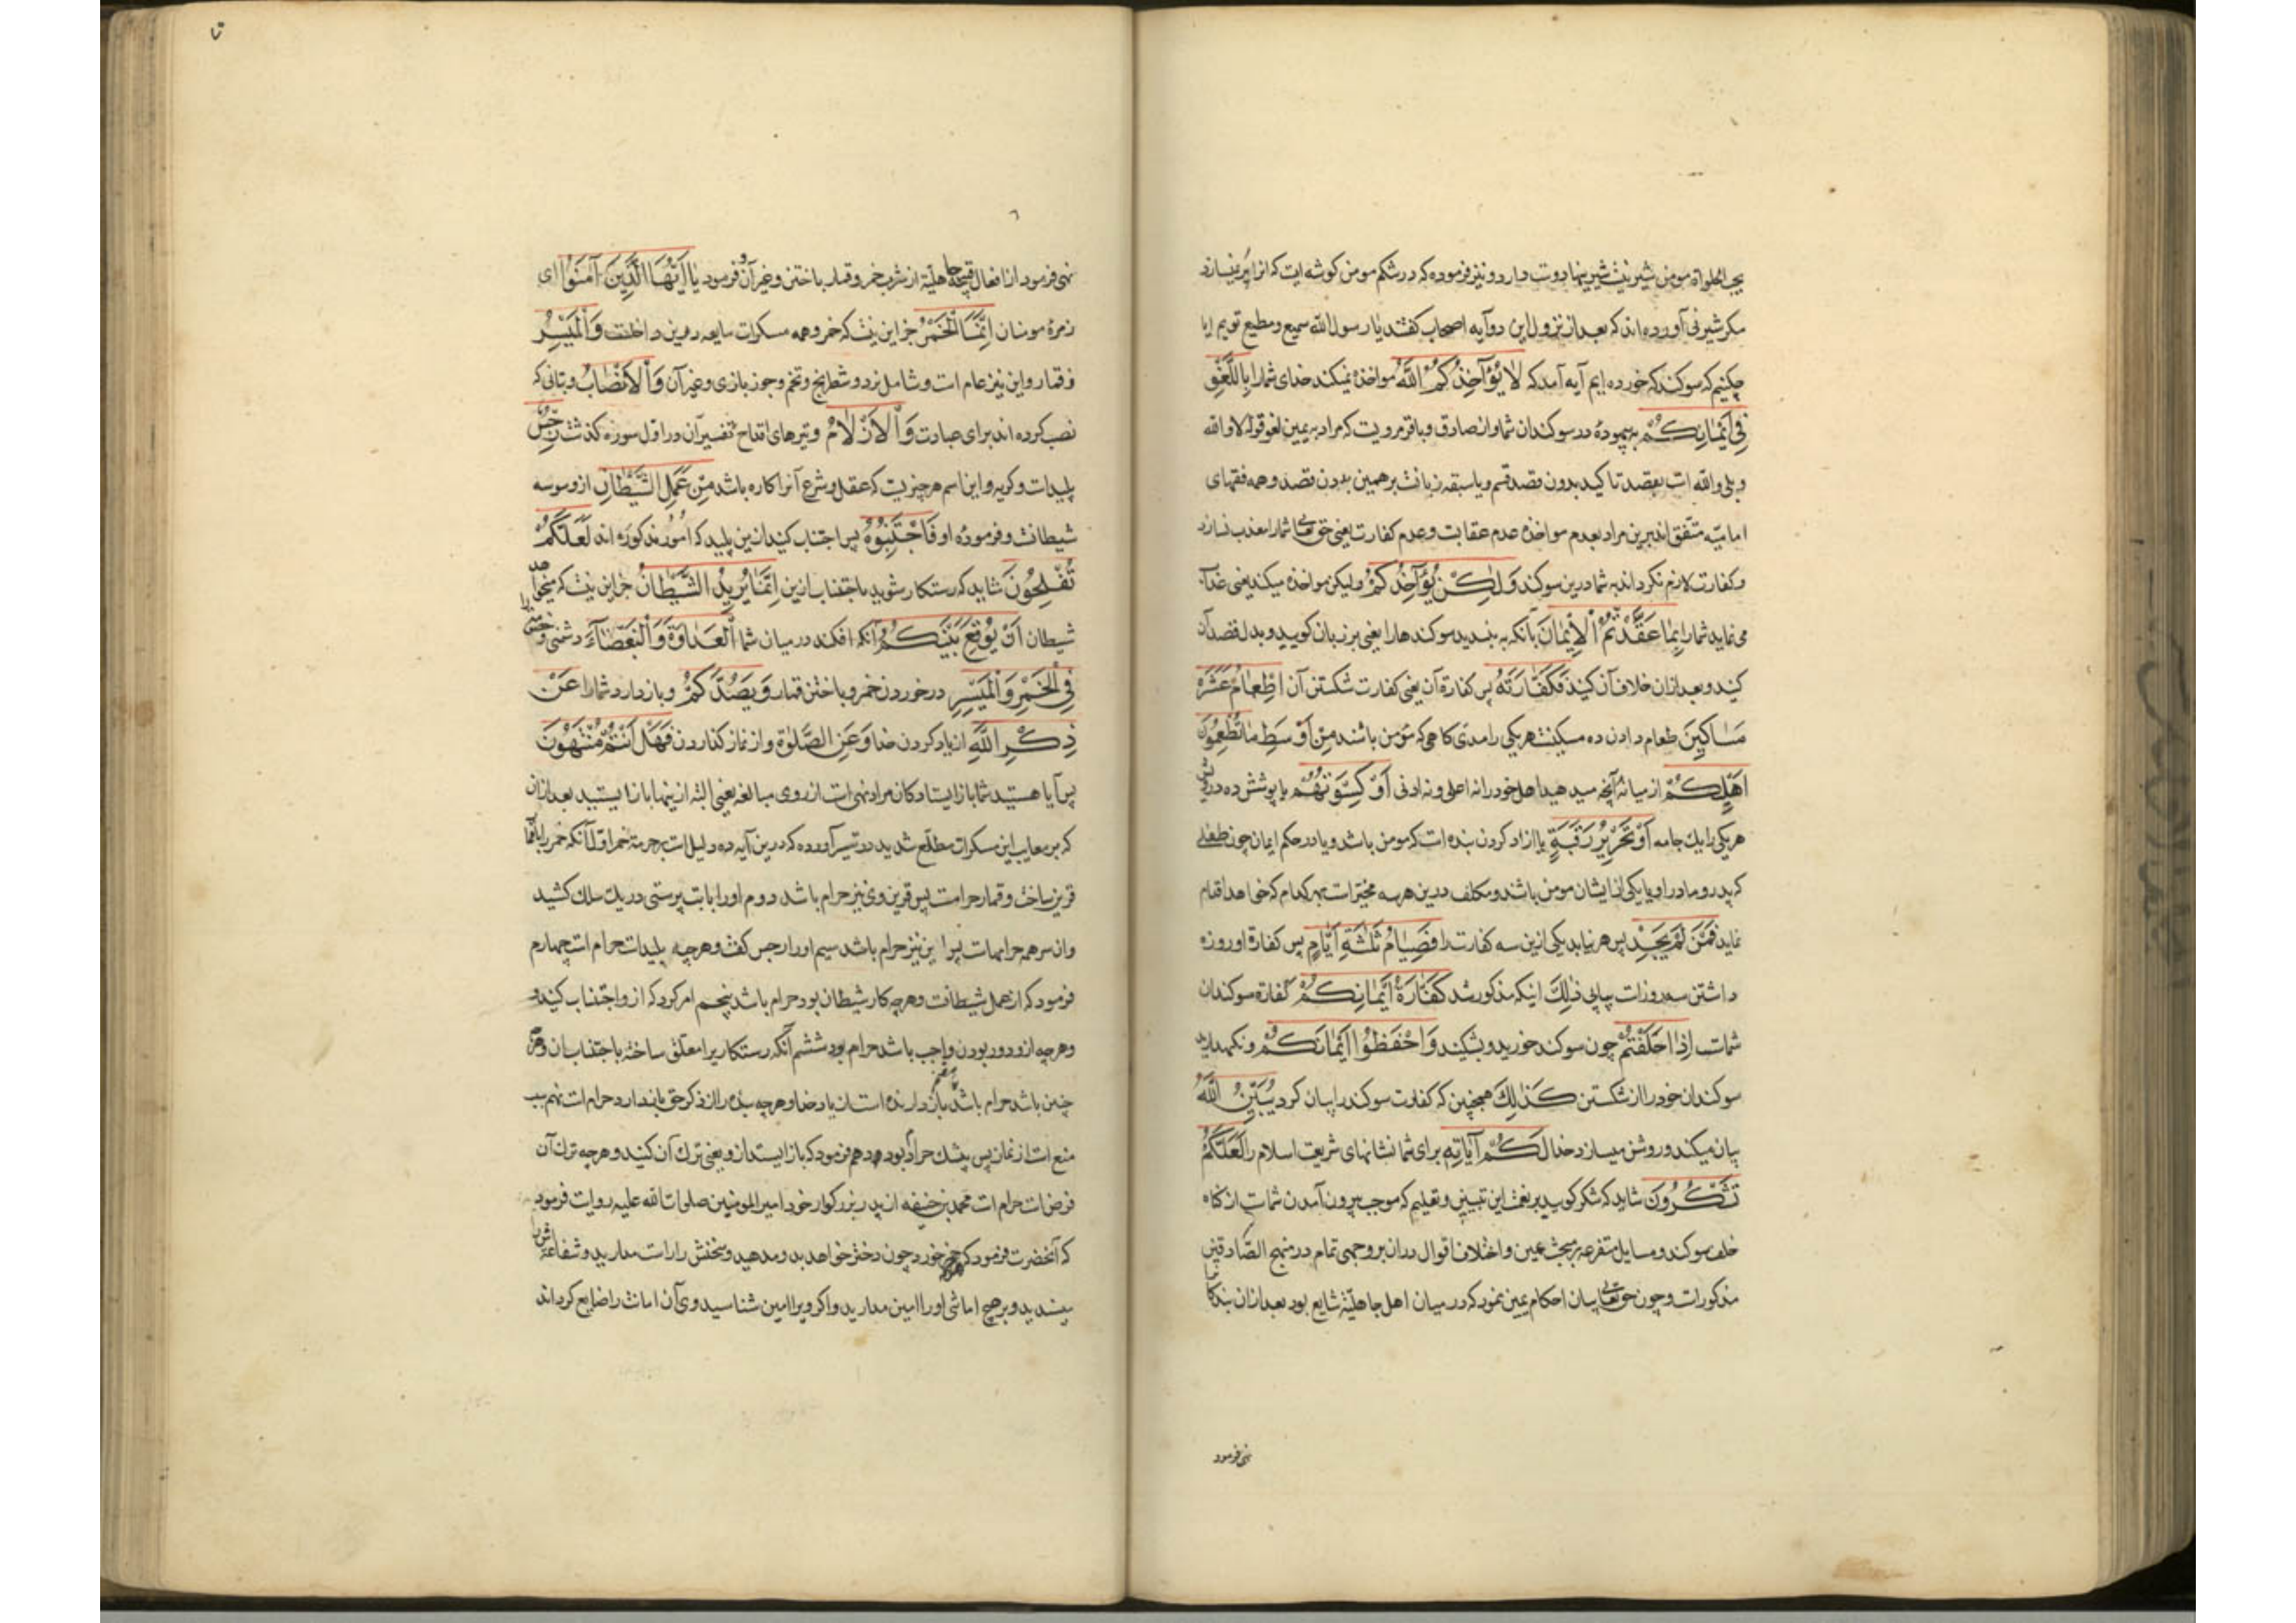 یحب الحلاوة مومن شیرینست شیرینیها دوست دارد و نیز فرموده که در شکم مومن گوشه ایست که انرا پر نمیسازد
مکر شیرنی آورده اند که بعد از نزول این دو آیه اصحاب کفتند یا رسول الله سمیع و مطیع توییم اما
چکنیم که سوکند که خورده ایم آیه آمد که لَا یُؤَاخِذُکُمُ اللّٰهُ مواخذه نمیکند خدای شما را بِاللَّغْوِ
فِی اَیْمَانِکُمْ به بیهوده در سوکندان شما و از صادق و باقر مرویست که مراد به یمین لغو قول لا والله
و بلی والله است بقصد تاکید بدون قصد قسم و یا سبقه زبانست بر همین بدون قصد و همه فقهای
امامیّه متّفق اند برین مراد بعدم مواخذه عدم عقابست و عدم کفارت یعنی حق تعالی شما را معذب نسازد
و کفارت لازم نکرداند به شما درین سوکند وَلٰکِنْ یُؤَاخِذُکُمْ ولیکن مواخذه میکند یعنی عذاب
می نماید شما را بِمَا عَقَّدْتُمُ الْاَیْمَانَ بآنکه به بندید سوکندها را یعنی بر زبان کویید و بدل قصد آن
کنید و بعد از ان خلاف آن کنید فَکَفَّارَتُهُ پس کفارة آن یعنی کفارت شکستن آن اِطْعَامُ عَشَرَةِ
مَسَاکِینَ طعام دادن ده مسکینست هریکی را مدی کاهی که مؤمن باشند مِنْ اَوْسَطِ مَا تُطْعِمُونَ
اَهْلِیکُمْ از میانهٔ آنچه میدهید اهل خود را نه اعلی و نه ادنی اَوْ کِسْوَتُهُمْ یا پوشش ده درویش
هریکی را یک جامه اَوْ تَحْرِیرُ رَقَبَةٍ یا ازاد کردن بنده است که مومن باشد و یا در حکم ایمان چون طفلی
که پدر و مادر او یا یکی از ایشان مومن باشد و مکلف درین هر سه مخیر است بهر کدام که خواهد اقدام
نماید فَمَنْ لَمْ یَجِدْ پس هر نیابد یکی ازین سه کفارت را فَصِیَامُ ثَلٰثَةِ اَیَّامٍ پس کفارة او روزه
داشتن سه روز است پیاپی ذٰلِکَ اینکه مذکور شد کَفَّارَةُ اَیْمَانِکُمْ کفارة سوکندان
شماست اِذَا حَلَفْتُمْ چون سوکند خورید و بشکنید وَاحْفَظُوا اَیْمَانَکُمْ و نکهدارید
سوکندان خود را از شکستن کَذٰلِکَ همچنین که کفارت سوکند را بیان کرد یُبَیِّنُ اللّٰهُ
بیان میکند و روشن میسازد خدا لَکُمْ آیَاتِهِ برای شما نشانهای شریعت اسلام را لَعَلَّکُمْ
تَشْکُرُونَ شاید که شکر کویید بر نعمت این تبیین و تعلیم که موجب بیرون آمدن شماست از کناه
خلف سوکند و مسایل متفرعه بر مبحث یمین و اختلاف اقوال دران بر وجهی تمام در منهج الصّادقین
مذکورات و چون حق تعالی بیان احکام یمین نمود که در میان اهل جاهلیّة شایع بود بعد ازان بندکانرا
نهی فرمود
نهی فرمود از افعال قبیحهٔ جاهلیّة از شرب خمر و قمار باختن و غیر آن و فرمود یَا اَیُّهَا الَّذِینَ آمَنُوا ای
زمرهٔ مومنان اِنَّمَا الْخَمْرُ جز این نیست که خمر و همه مسکرات مایعه درین داخلست وَالْمَیْسِرُ
و قمار و این نیز عام است و شامل نرد و شطرنج و تخم و جوز بازی و غیر آن وَالْاَنْصَابُ و بتانی که
نصب کرده اند برای عبادت وَالْاَزْلَامُ و تیرهای اقداح تفسیر آن در اوّل سوره کذشت رِجْسٌ
پلیدات و کریه و این اسم هر چیزیست که عقل و شرع آنرا کاره باشد مِنْ عَمَلِ الشَّیْطَانِ از وسوسه
شیطانست و فرمودهٔ او فَاجْتَنِبُوهُ پس اجتناب کنید ازین پلید که امور مذکوره اند لَعَلَّکُمْ
تُفْلِحُونَ شاید که رستکار شوید باجتناب ازین اِنَّمَا یُرِیدُ الشَّیْطَانُ جز این نیست که میخواهد
شیطان اَنْ یُوقِعَ بَیْنَکُمُ آنکه افکند در میان شما الْعَدَاوَةَ وَالْبَغْضَآءَ دشمنی و خشم را
فِی الْخَمْرِ وَالْمَیْسِرِ در خوردن خمر و باختن قمار وَیَصُدَّکُمْ و بازدارد شما را عَنْ
ذِکْرِ اللّٰهِ از یاد کردن خدا وَعَنِ الصَّلٰوةِ و از نماز کذاردن فَهَلْ اَنْتُمْ مُنْتَهُونَ
پس آیا هستید شما باز ایستادکان مراد نهی است از روی مبالغه یعنی البته ازینها باز ایستید بعد ازان
که بر معایب این مسکرات مطّلع شدید در تیسیر آورده که درین آیه ده دلیل است بر حرمة خمر اوّل آنکه خمر را با قمار
قرین ساخت و قمار حرامست پس قرین وی نیز حرام باشد دوم او را با بت پرستی در یک سلک کشید
و ان سر همه حرامهاست پس این نیز حرام باشد سیم او را رجس کفت و هرچه پلیدات حرام است چهارم
فرمود که از عمل شیطانست و هرچه کار شیطان بود حرام باشد پنجم امر کرد که از و اجتناب کنید و
هرچه ازو دور بودن واجب باشد حرام بود ششم آنکه رستکاری را معلّق ساخته باجتناب ان و هرچه
چنین باشد حرام باشد بازدارنده است از یاد خدا و هرچه بنده را از ذکر حق بازدارد حرام است نهم سبب
منع است از نماز پس بیشک حرام بود دهم فرمود که باز ایستید ازو یعنی ترک آن کنید و هرچه ترک آن
فرضات حرام است محمد بن حنیفه از پدر بزرکوار خود امیر المومنین صلوات الله علیه روایت فرمود
که آنحضرت فرمود که هرکه خمر خورد چون دختر خواهد بدو مدهید و سخنش را راست مدارید و شفاعتش را
مپسندید و بر هیچ امانتی او را امین مدارید و اکر ویرا امین شناسید و وی آن امانت را ضایع کرداند